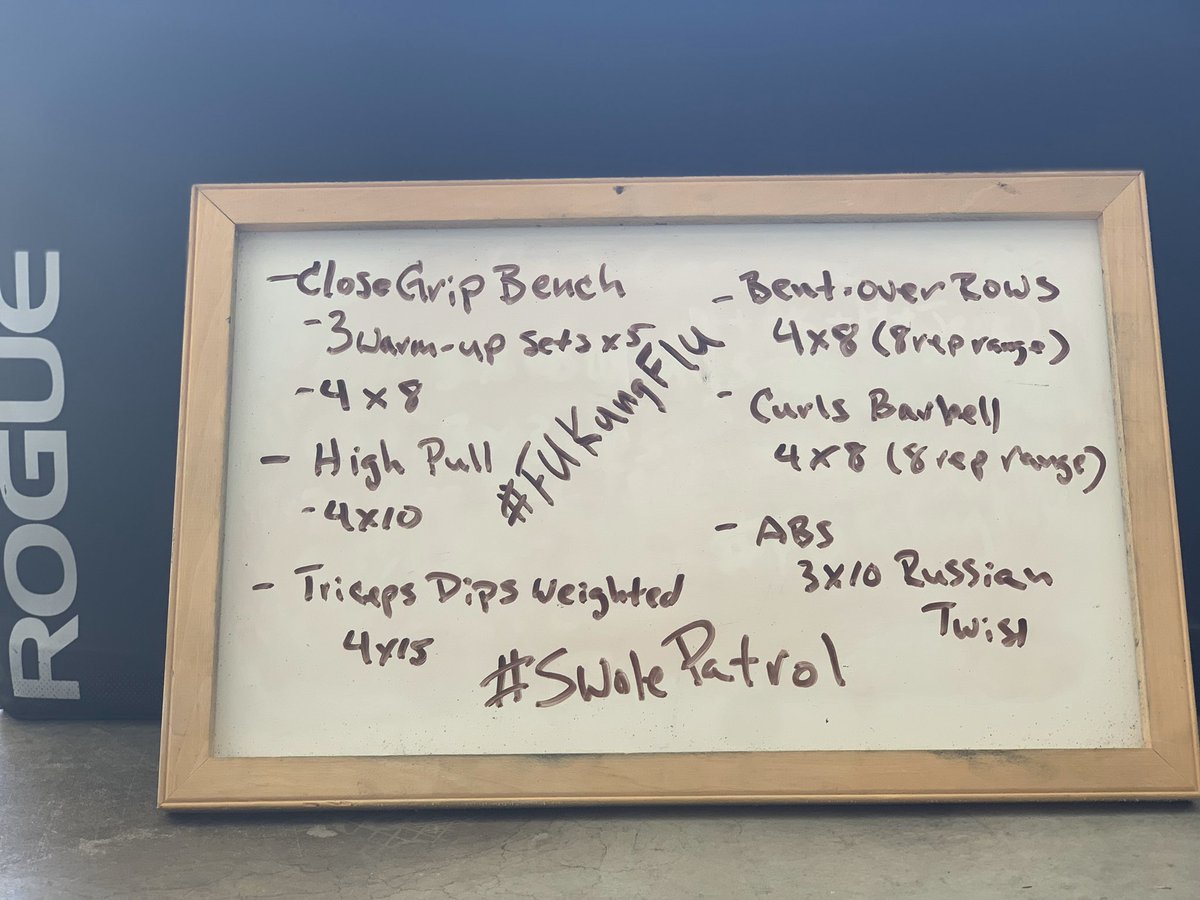 ROGUE
- Close Grip Bench
- 3 warm-up sets x5
- 4 x 8
- High Pull
- 4x10
- Triceps Dips weighted
4x15
#FUKungFlu
#SwolePatrol
- Bent-over Rows
4x8 (8 rep range)
- Curls Barbell
4x8 (8 rep range)
- ABs
3x10 Russian
Twist